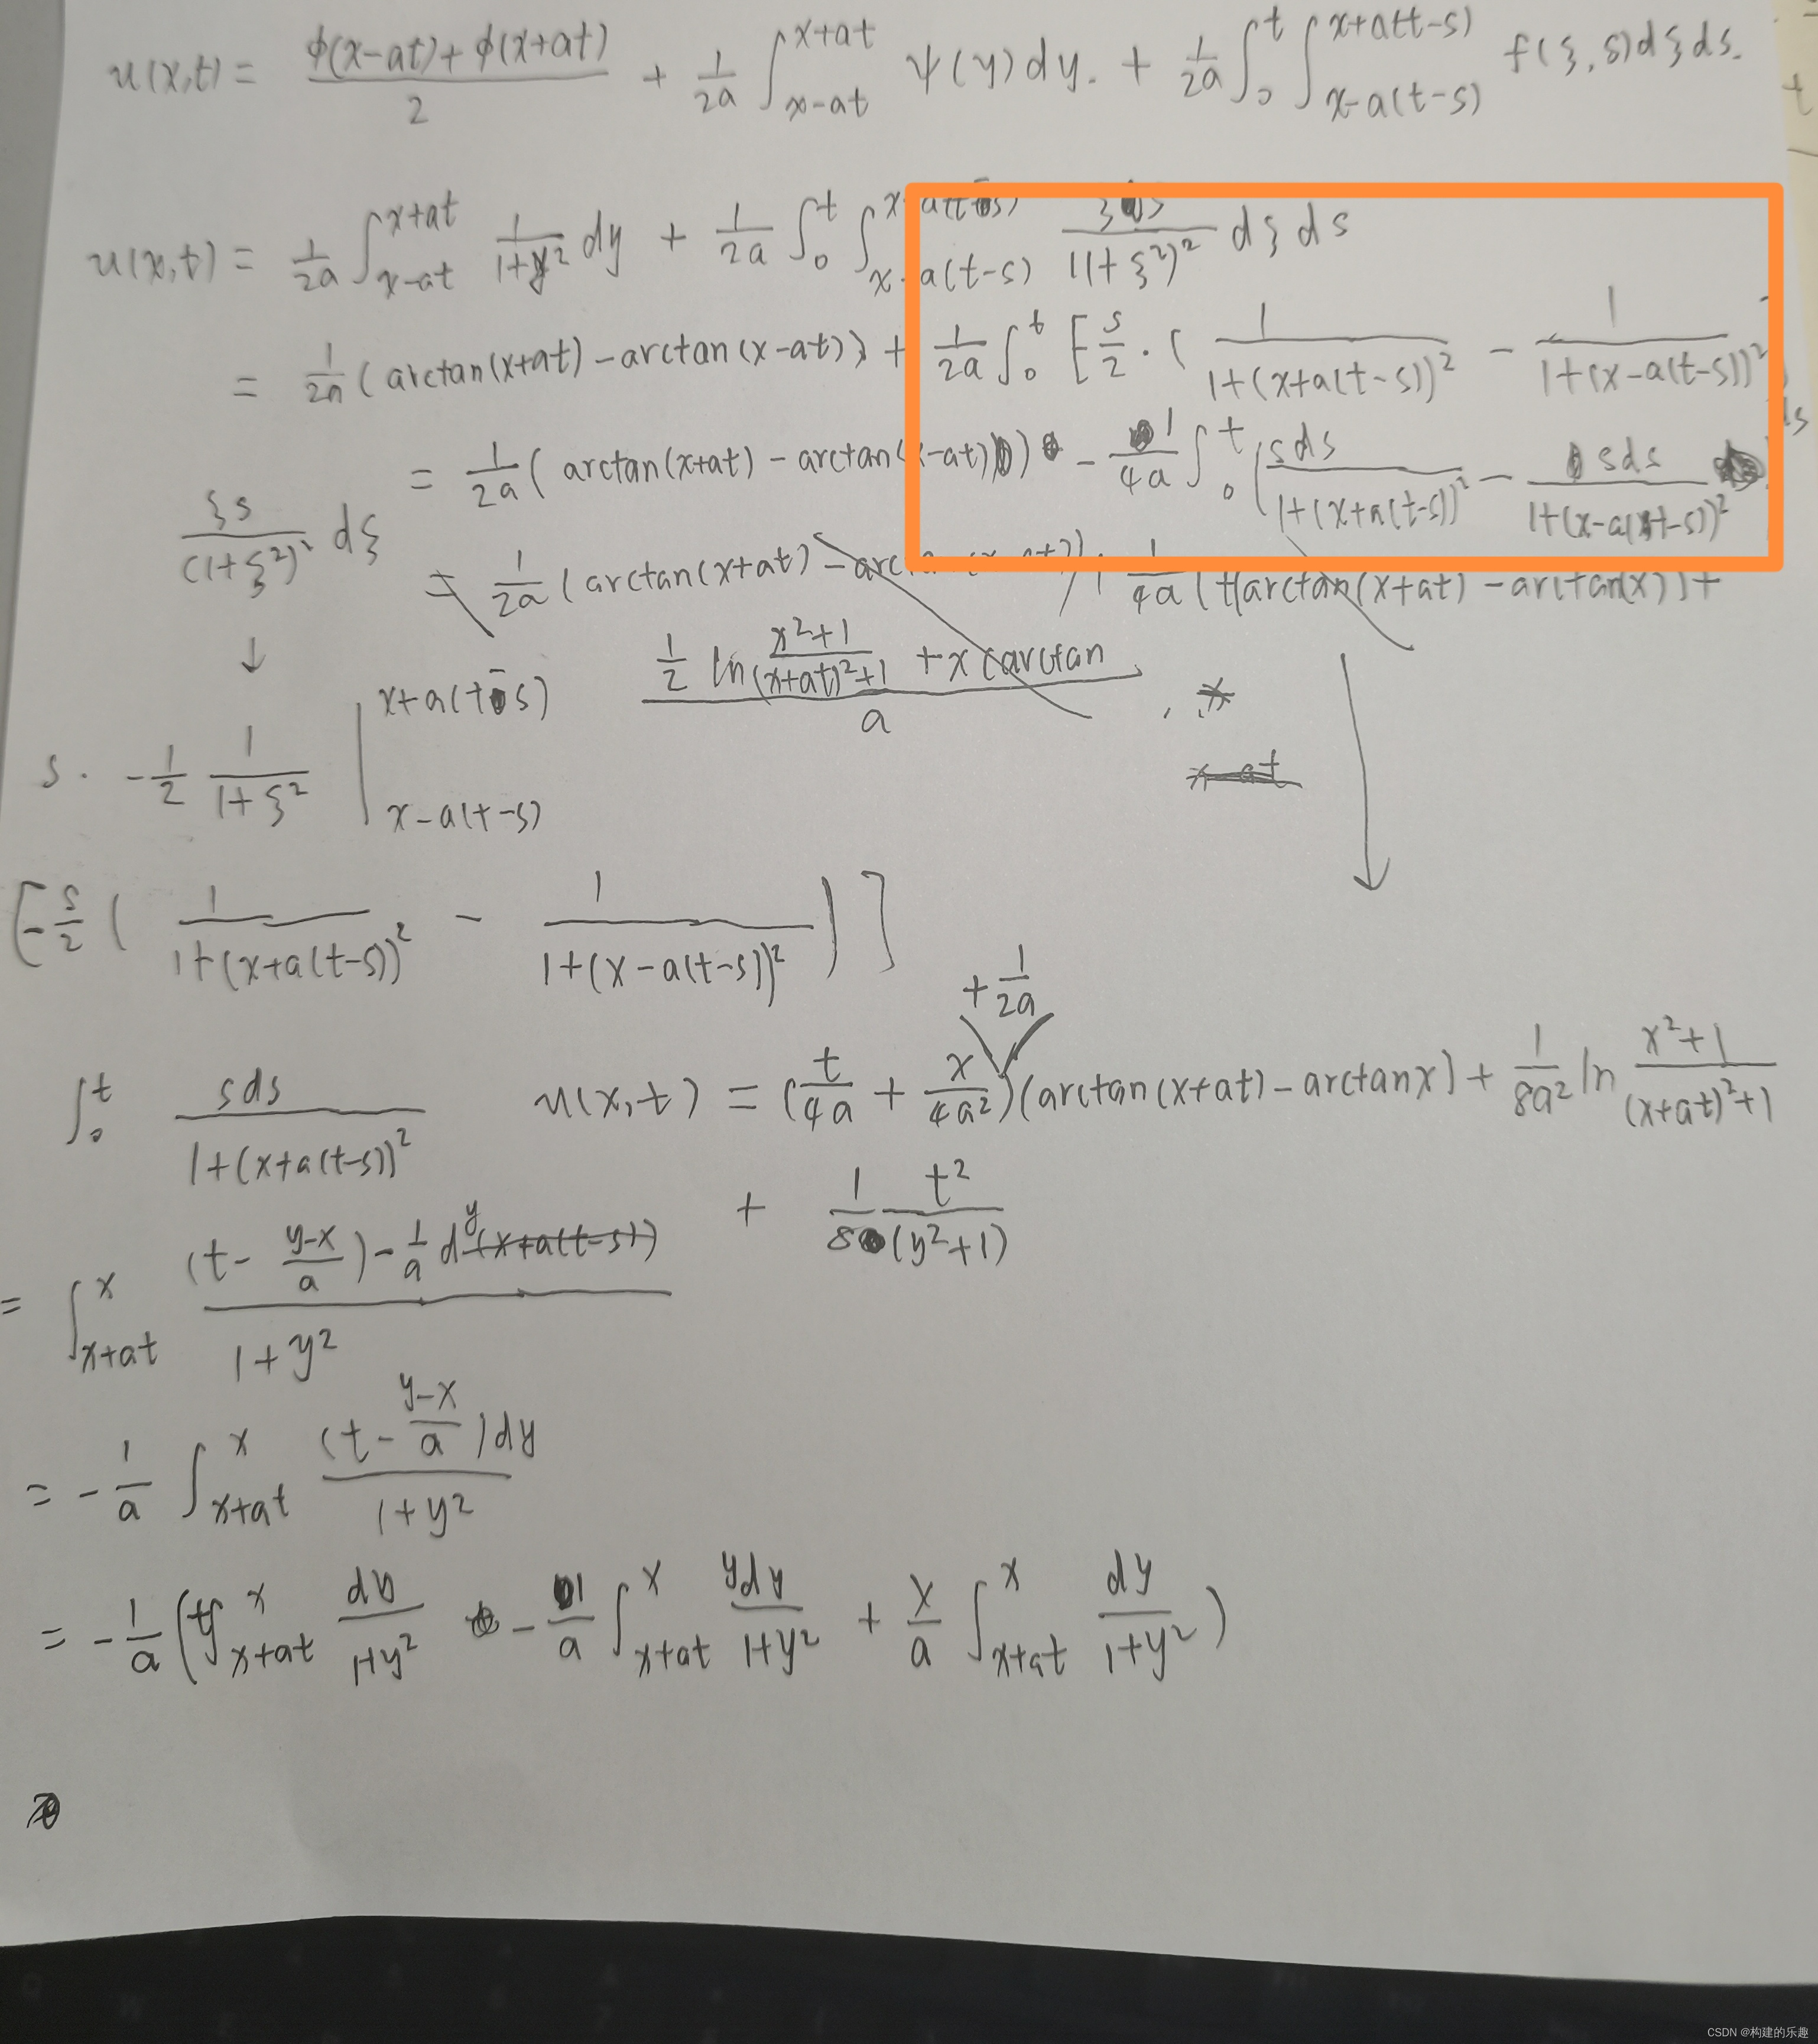 u(x,t) = \frac{\phi(x-at)+\phi(x+at)}{2} + \frac{1}{2a} \int_{x-at}^{x+at} ψ(y)dy. + \frac{1}{2a} \int_0^t \int_{x-a(t-s)}^{x+a(t-s)} f(ξ,s)dξds.
u(x,t) = \frac{1}{2a} \int_{x-at}^{x+at} \frac{1}{1+y^2} dy + \frac{1}{2a} \int_0^t \int_{x-a(t-s)}^{x+a(t-s)} \frac{ξs}{(1+ξ^2)^2} dξds
= \frac{1}{2a} (arctan(x+at) - arctan(x-at)) + \frac{1}{2a} \int_0^t [\frac{s}{2} · ( \frac{1}{1+(x+a(t-s))^2} - \frac{1}{1+(x-a(t-s))^2}
ds
= \frac{1}{2a} ( arctan(x+at) - arctan(x-at)) - \frac{1}{4a} \int_0^t ( \frac{sds}{1+(x+a(t-s))^2} - \frac{sds}{1+(x-a(t-s))^2}
\frac{ξs}{(1+ξ^2)^2} dξ
= \frac{1}{2a} (arctan(x+at) - arc \frac{1}{4a} (t(arctan(x+at) - arctan(x)) +
↓
\frac{\frac{1}{2} ln \frac{x^2+1}{(x+at)^2+1} + x (arctan}{a}
s · -\frac{1}{2} \frac{1}{1+ξ^2} |_{x-a(t-s)}^{x+a(t-s)}
x-at
[-\frac{s}{2} ( \frac{1}{1+(x+a(t-s))^2} - \frac{1}{1+(x-a(t-s))^2} ) ]
+\frac{1}{2a}
\int_0^t \frac{sds}{1+(x+a(t-s))^2}
u(x,t) = (\frac{t}{4a} + \frac{x}{4a^2})(arctan(x+at) - arctanx) + \frac{1}{8a^2} ln \frac{x^2+1}{(x+at)^2+1}
+ \frac{1}{8} \frac{t^2}{(y^2+1)}
= \int_{x+at}^{x} \frac{(t-\frac{y-x}{a}) -\frac{1}{a} dy (x+a(t-s))}{1+y^2}
= -\frac{1}{a} \int_{x+at}^{x} \frac{(t-\frac{y-x}{a})dy}{1+y^2}
= -\frac{1}{a} (t\int_{x+at}^{x} \frac{dy}{1+y^2} - \frac{1}{a} \int_{x+at}^{x} \frac{ydy}{1+y^2} + \frac{x}{a} \int_{x+at}^{x} \frac{dy}{1+y^2} )
CSDN @构建的乐趣